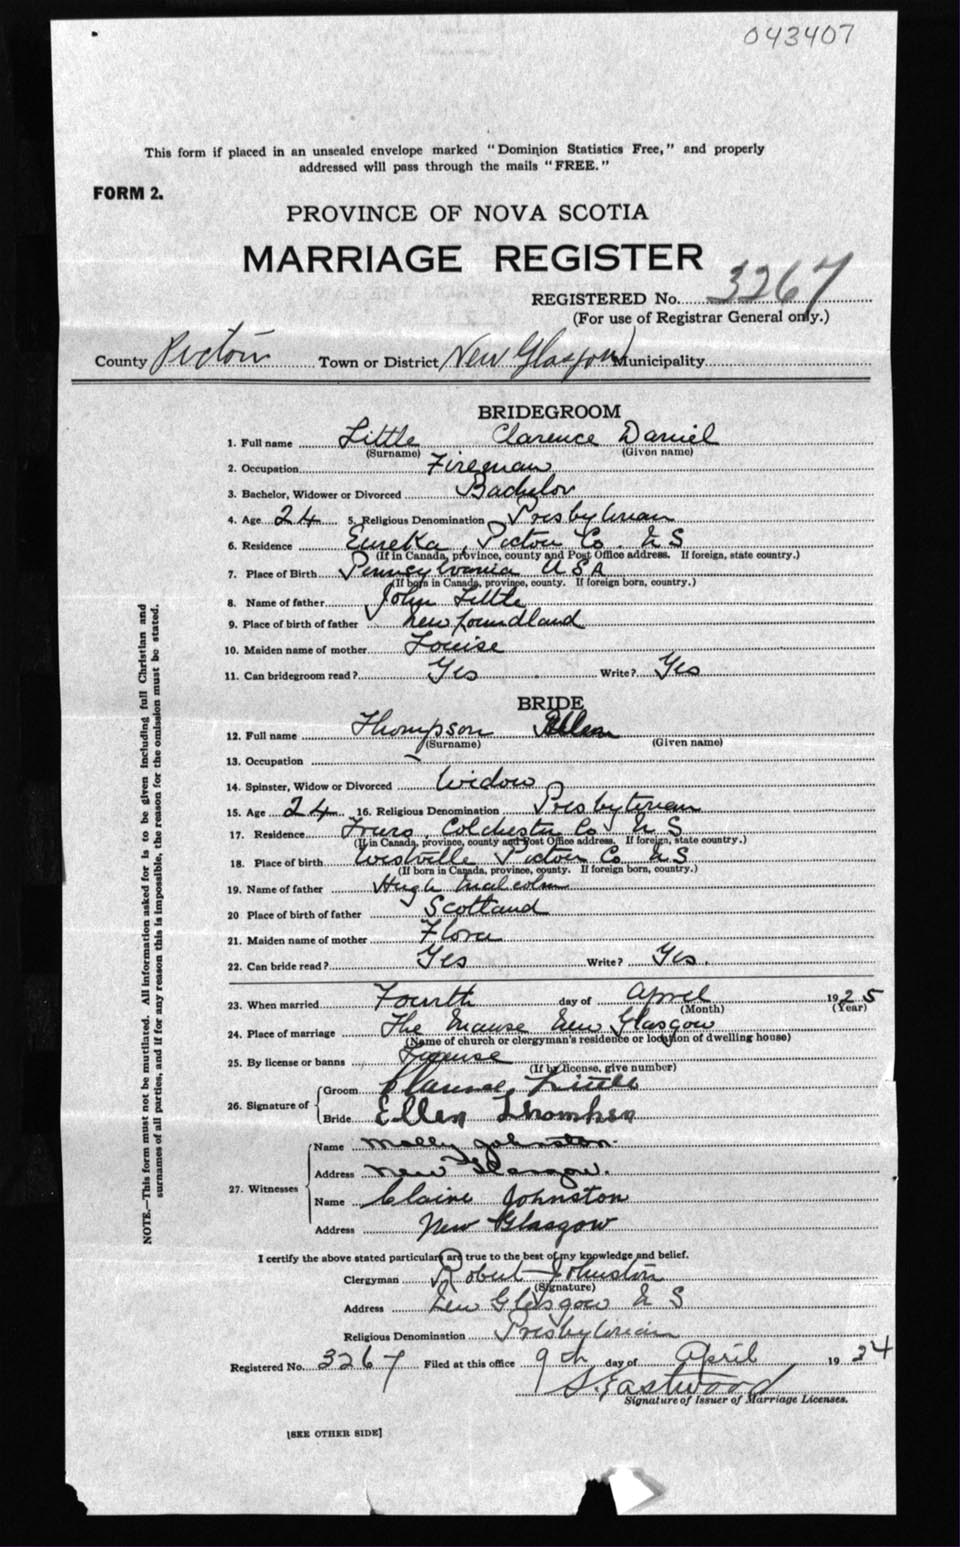 043407
This form if placed in an unsealed envelope marked "Dominion Statistics Free," and properly
addressed will pass through the mails "FREE."
FORM 2.
PROVINCE OF NOVA SCOTIA
MARRIAGE REGISTER
REGISTERED No. 3267
(For use of Registrar General only.)
County Pictou Town or District New Glasgow Municipality
BRIDEGROOM
1. Full name Little Clarence Daniel
(Surname) (Given name)
2. Occupation Fireman
3. Bachelor, Widower or Divorced Bachelor
4. Age 24 5. Religious Denomination Presbyterian
6. Residence Eureka, Pictou Co. N S
(If in Canada, province, county and Post Office address. If foreign, state country.)
7. Place of Birth Pennsylvania U S A
(If born in Canada, province, county. If foreign born, country.)
8. Name of father John Little
9. Place of birth of father Newfoundland
10. Maiden name of mother Louise
11. Can bridegroom read? Yes Write? Yes
BRIDE
12. Full name Thompson Ellen
(Surname) (Given name)
13. Occupation –
14. Spinster, Widow or Divorced Widow
15. Age 24 16. Religious Denomination Presbyterian
17. Residence Truro, Colchester Co N S
(If in Canada, province, county and Post Office address. If foreign, state country.)
18. Place of birth Westville Pictou Co N S
(If born in Canada, province, county. If foreign born, country.)
19. Name of father Hugh Malcolm
20 Place of birth of father Scotland
21. Maiden name of mother Flora
22. Can bride read? Yes Write? Yes.
23. When married Fourth day of April 1925
(Month) (Year)
24. Place of marriage The Manse New Glasgow
(Name of church or clergyman's residence or location of dwelling house)
25. By license or banns License
(If by license, give number)
26. Signature of
Groom Clarence Little
Bride Ellen Thompson
27. Witnesses
Name Molly Johnston
Address New Glasgow.
Name Claire Johnston
Address New Glasgow
I certify the above stated particulars are true to the best of my knowledge and belief.
Clergyman Robert Johnston
(Signature)
Address New Glasgow N S
Religious Denomination Presbyterian
Registered No. 3267 Filed at this office 9th day of April 1924
S. Eastwood
Signature of Issuer of Marriage Licenses.
[SEE OTHER SIDE]
NOTE.—This form must not be mutilated. All information asked for is to be given including full Christian and
surnames of all parties, and if for any reason this is impossible, the reason for the omission must be stated.